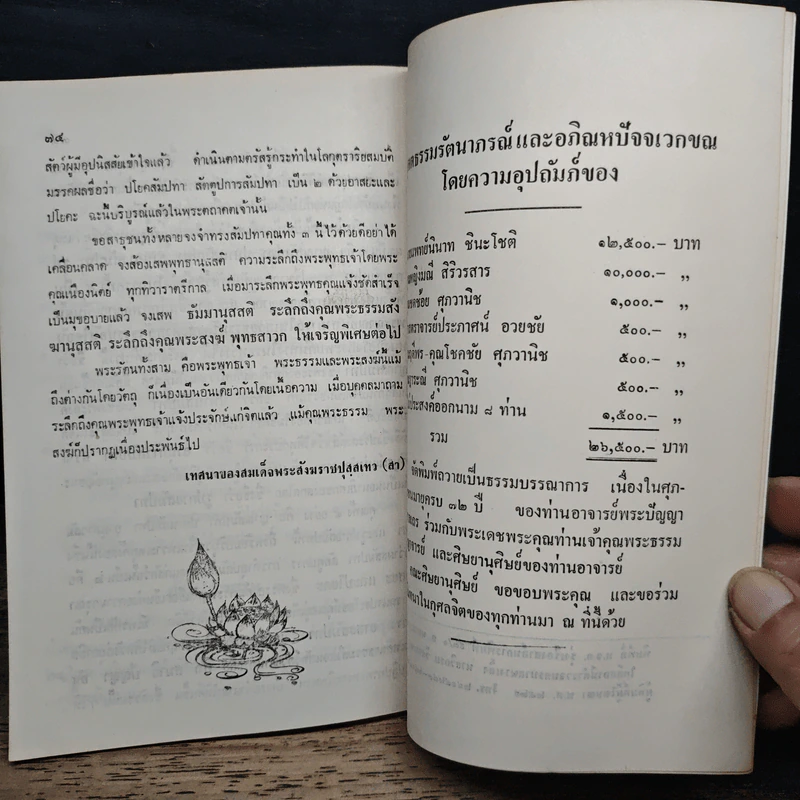 ๗๔
สัตว์ผู้มีอุปนิสสัยเข้าใจแล้ว ดำเนินตามตรัสรู้กระทำในโลกุตราริยสมบัติ
มรรคผลชื่อว่า ปโยคสัมปทา สัตตูปการสัมปทา เป็น ๒ ด้วยอาสยะและ
ปโยคะ ฉะนี้บริบูรณ์แล้วในพระตถาคตเจ้านั้น
ขอสาธุชนทั้งหลายจงจำทรงสัมปทาคุณทั้ง ๓ นี้ไว้ด้วยดีอย่าได้
เคลื่อนคลาด จงส้องเสพพุทธานุสสติ ความระลึกถึงพระพุทธเจ้าโดยพระ
คุณเนืองนิตย์ ทุกทิวาราตรีกาล เมื่อมาระลึกพระพุทธคุณแจ้งชัดสำเร็จ
เป็นมุขอุบายแล้ว จงเสพ ธัมมานุสสติ ระลึกถึงคุณพระธรรมสัง
ฆานุสสติ ระลึกถึงคุณพระสงฆ์ พุทธสาวก ให้เจริญพิเศษต่อไป
พระรัตนทั้งสาม คือพระพุทธเจ้า พระธรรมและพระสงฆ์นี้แม้
ถึงต่างกันโดยวัตถุ ก็เนื่องเป็นอันเดียวกันโดยเนื้อความ เมื่อบุคคลมาถาม
ระลึกถึงคุณพระพุทธเจ้าแจ้งประจักษ์แก่จิตแล้ว แม้คุณพระธรรม พระ
สงฆ์ก็ปรากฏเนื่องประพันธ์ไป
เทสนาของสมเด็จพระสังฆราชปุสฺสเทว (สา)
ธรรมรัตนาภรณ์ และอภิณหปัจจเวกขณ
โดยความอุปถัมภ์ของ
แพทย์นินาท ชินะโชติ ๑๒,๕๐๐.– บาท
หญิงมณี สิริวรสาร ๑๐,๐๐๐.– ,,
ช้อย ศุภวานิช ๑,๐๐๐.– ,,
ตราจารย์ประภาศน์ อวยชัย ๕๐๐.– ,,
คุณโชคชัย ศุภวานิช ๕๐๐.– ,,
ศุภวานิช ๕๐๐.– ,,
ประสงค์ออกนาม ๘ ท่าน ๑,๕๐๐.– ,,
รวม ๒๖,๕๐๐.– บาท
จัดพิมพ์ถวายเป็นธรรมบรรณาการ เนื่องในศุภ-
มายุครบ ๓๒ ปี ของท่านอาจารย์พระปัญญา
ร่วมกับพระเดชพระคุณท่านเจ้าคุณพระธรรม
จารย์ และศิษยานุศิษย์ของท่านอาจารย์
คณะศิษยานุศิษย์ ขอขอบพระคุณ และขอร่วม
นาในกุศลจิตของทุกท่านมา ณ ที่นี้ด้วย